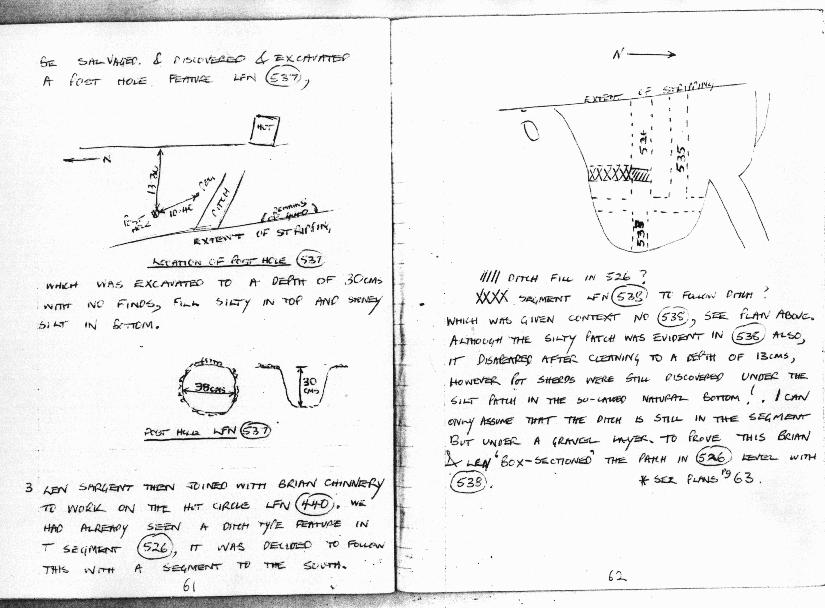 BE SALVAGED. & DISCOVERED & EXCAVATED
A POST HOLE FEATURE LFN 537,
HUT
N
13.70
10.40
POST HOLE
DITCH
EXTENT OF STRIPPING
LOCATION OF POST HOLE 537
WHICH WAS EXCAVATED TO A DEPTH OF 30CMS
WITH NO FINDS, FILL SILTY IN TOP AND STONEY
SILT IN BOTTOM.
38CMS
30 CMS
POST HOLE LFN 537
3 LEN SARGENT THEN JOINED WITH BRIAN CHINNERY
TO WORK ON THE HUT CIRCLE LFN 440. WE
HAD ALREADY SEEN A DITCH TYPE FEATURE IN
T SEGMENT 526, IT WAS DECIDED TO FOLLOW
THIS WITH A SEGMENT TO THE SOUTH.
61
N
EXTENT OF STRIPPING
526
535
538
//// DITCH FILL IN 526 ?
XXXX SEGMENT LFN 538 TO FOLLOW DITCH ?
WHICH WAS GIVEN CONTEXT NO 538, SEE PLAN ABOVE.
ALTHOUGH THE SILTY PATCH WAS EVIDENT IN 538 ALSO,
IT DISAPEARED AFTER CLEANING TO A DEPTH OF 13CMS,
HOWEVER POT SHERDS WERE STILL DISCOVERED UNDER THE
SILT PATCH IN THE SO-CALLED NATURAL BOTTOM!. I CAN
ONLY ASSUME THAT THE DITCH IS STILL IN THE SEGMENT
BUT UNDER A GRAVEL LAYER. TO PROVE THIS BRIAN
& LEN 'BOX-SECTIONED' THE PATCH IN 526 LEVEL WITH
538.
* SEE PLANS Pg 63.
62